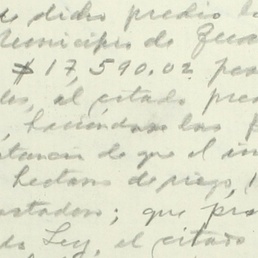 de dicho predio la
Municipio de
$17,590.02 pes
al citado pred
haciéndose las
tancia de que el in
hectáreas de riego,
; que pro
Ley, el citado